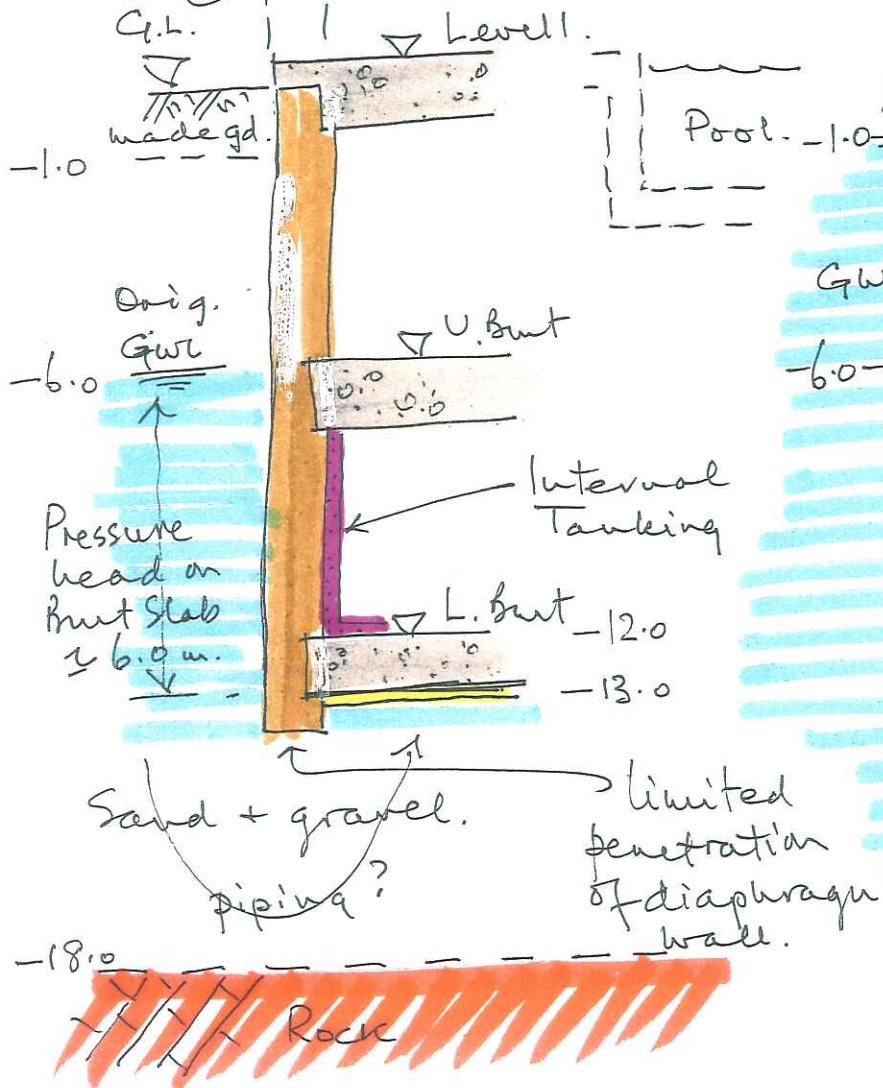 G.L.
Level 1.
made gd.
Pool.
-1.0
-1.0
Orig.
GWL
GW
U. Bmt
-6.0
-6.0
Internal
Tanking
Pressure
head on
Bmt Slab
≃ 6.0 m.
L. Bmt
-12.0
-13.0
Sand + gravel.
limited
penetration
of diaphragm
wall.
piping?
-18.0
Rock